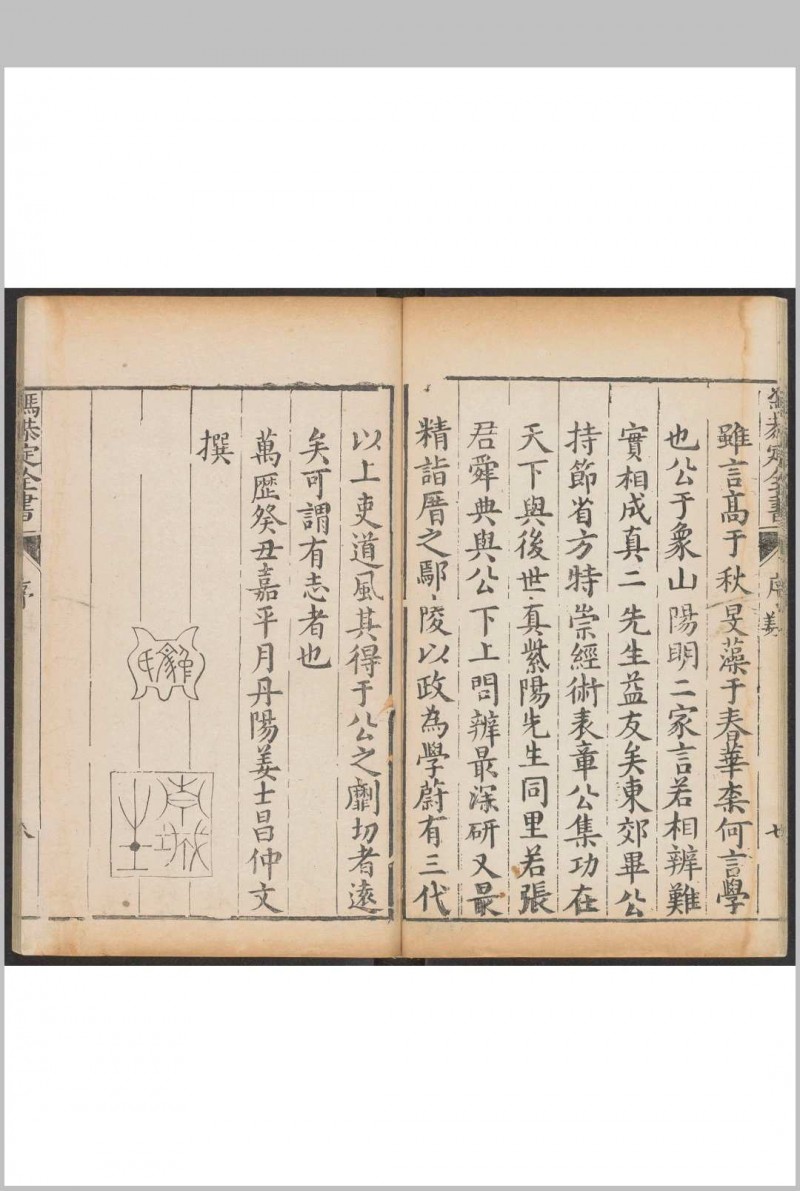 馮恭定全書
序 姜
七
雖言髙于秋旻藻于春華柰何言學
也公于象山陽明二家言若相辨難
實相成真二先生益友矣東郊畢公
持節省方特崇經術表章公集功在
天下與後世真紫陽先生同里若張
君舜典與公下上問辨最深研又最
精詣厝之鄢陵以政為學蔚有三代
以上吏道風其得于公之劘切者遠
矣可謂有志者也
萬歴癸丑嘉平月丹陽姜士昌仲文
撰
馮恭定全書
序
八